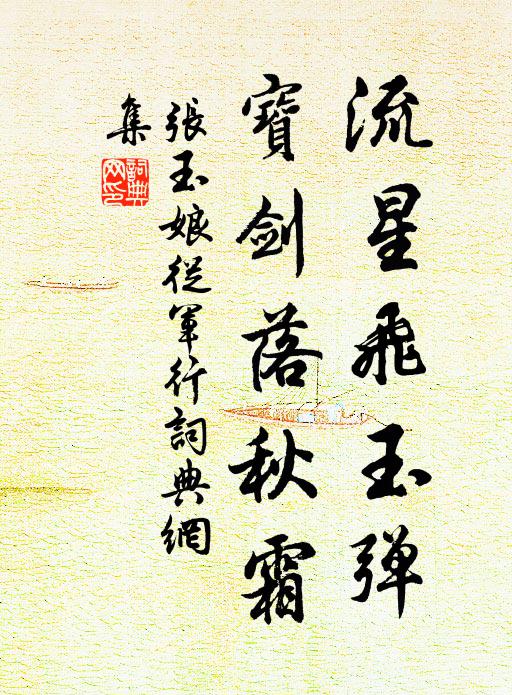 流星飛玉弾
寶劍落秋霜
張玉娘從軍行詞典網
集
詞典網印